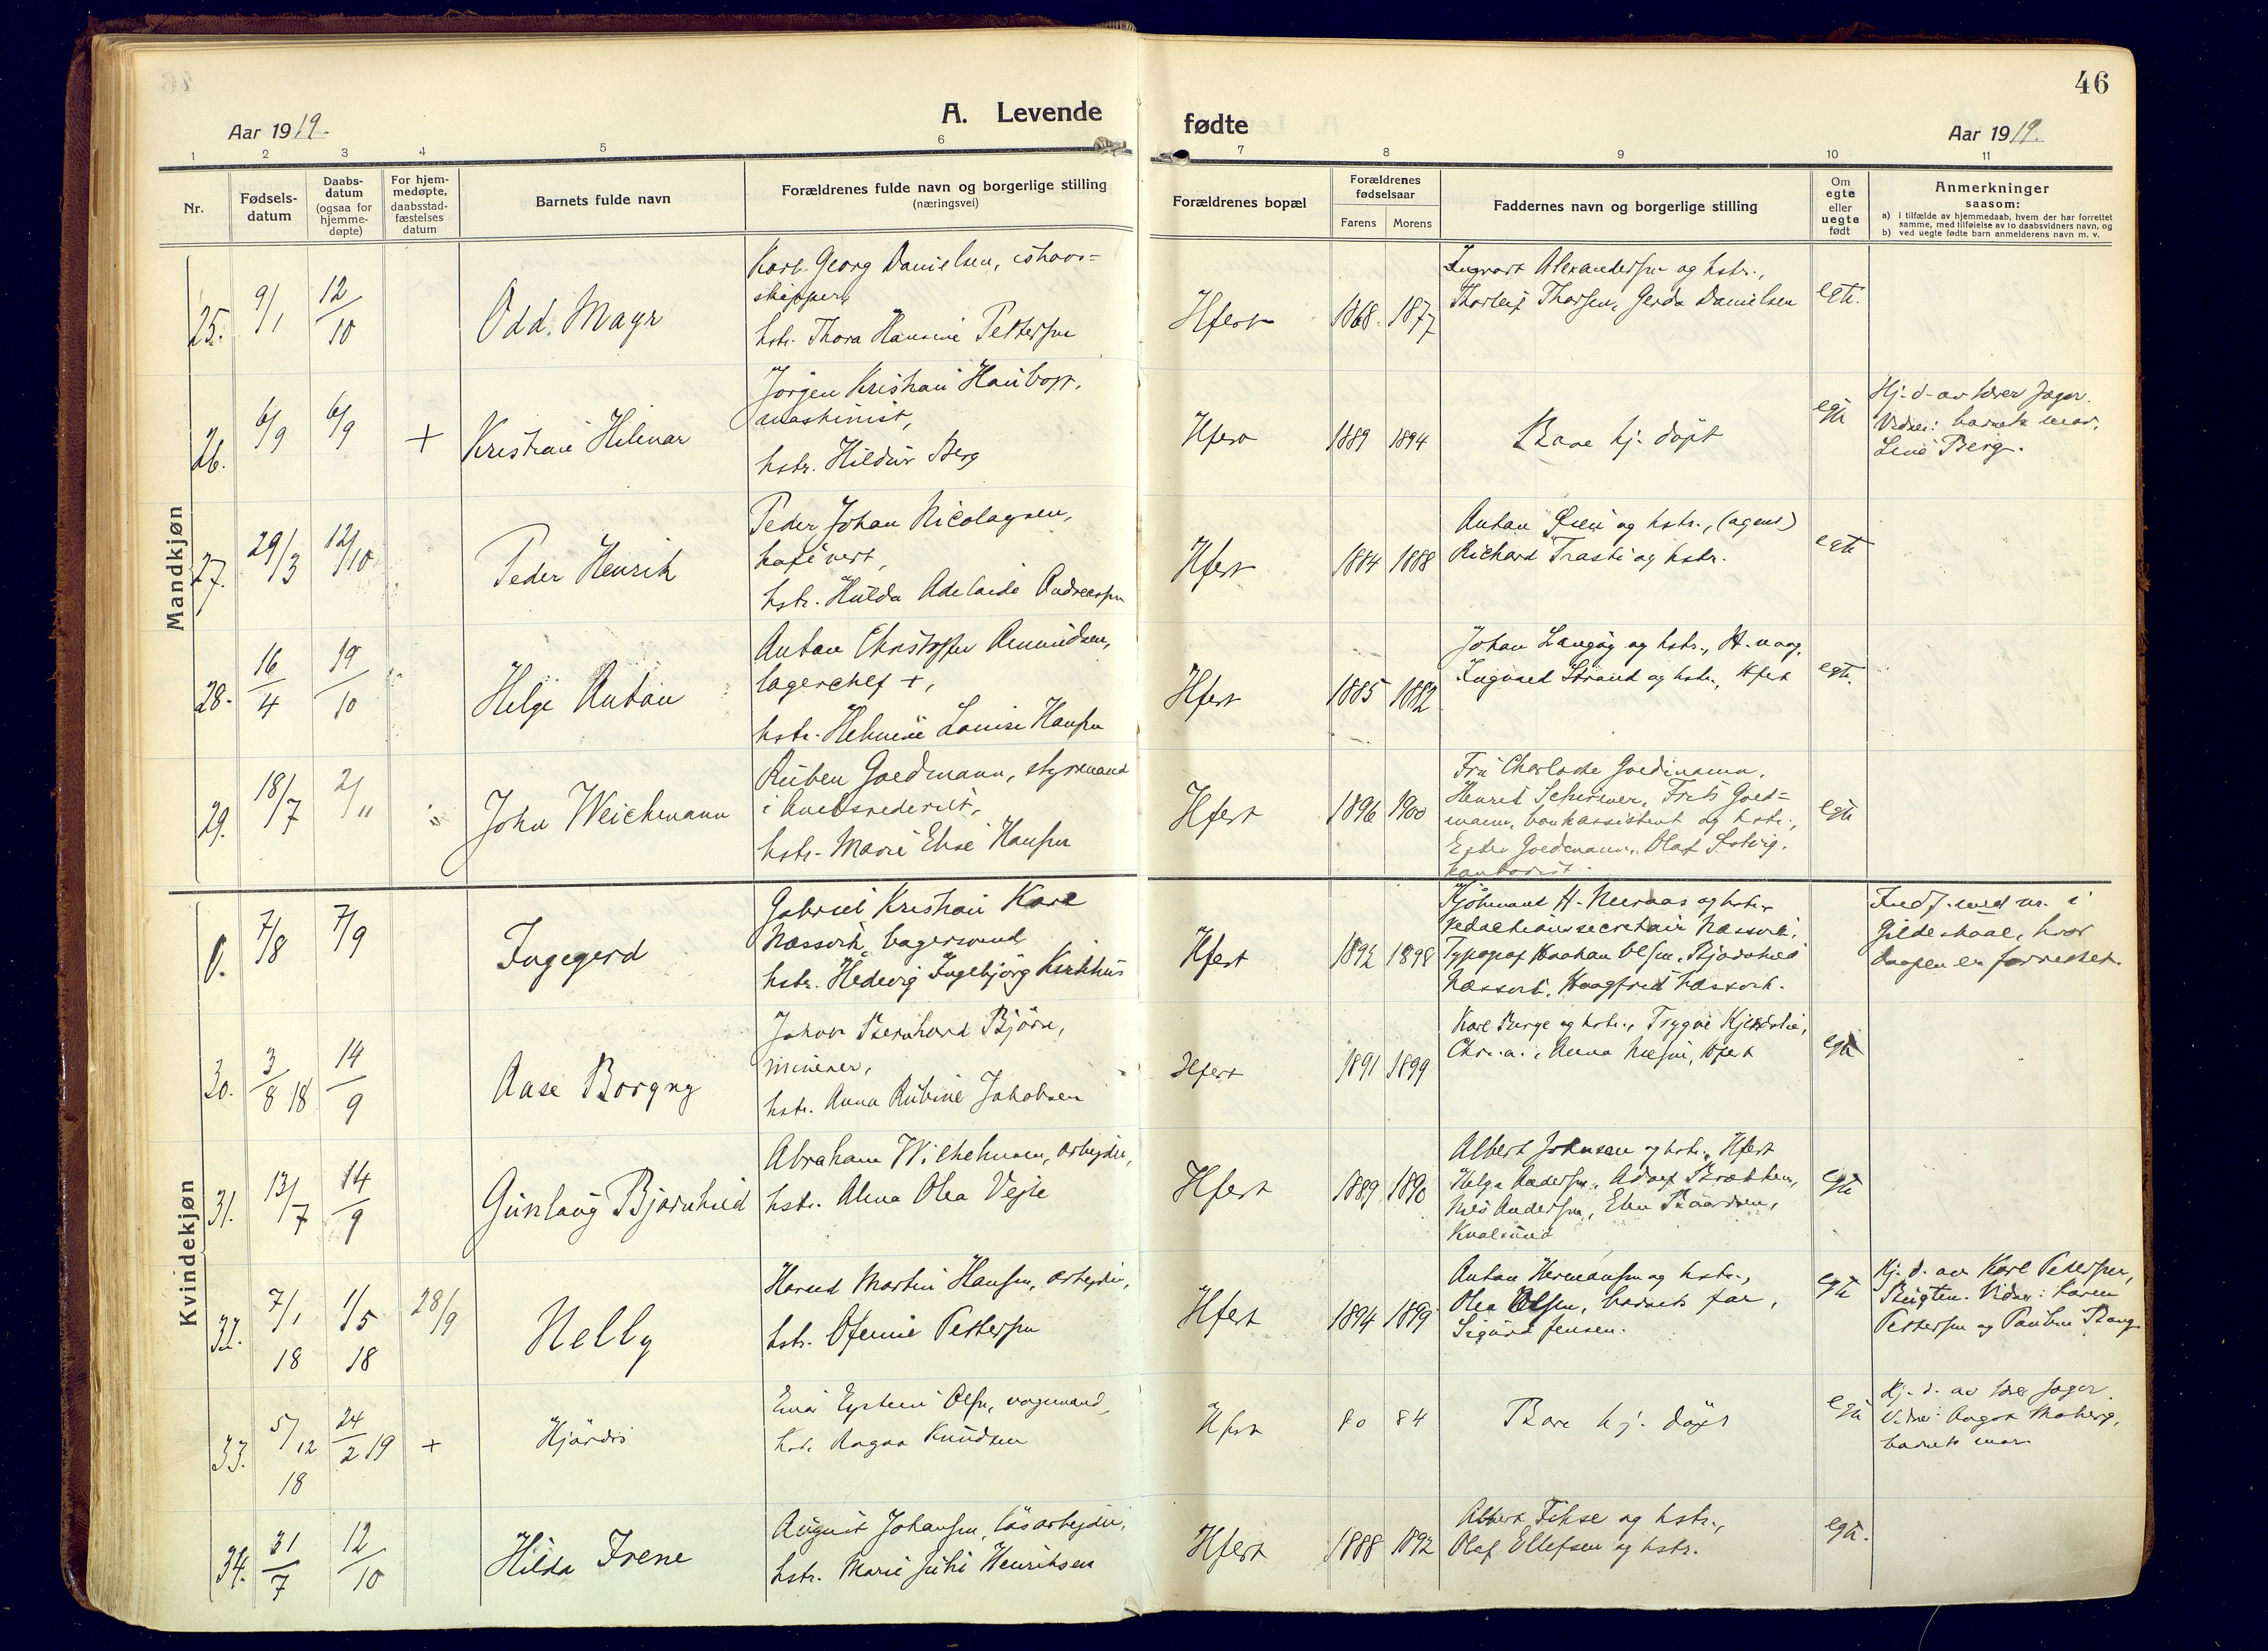 46
A. Levende
fødte
Aar 1919.
Aar 1919.
1 2 3 4 5 6 7 8 9 10 11
Nr.
Fødsels-
datum
Daabs-
datum
(ogsaa for
hjemme-
døpte)
For hjem-
medøpte,
daabsstad-
fæstelses
datum
Barnets fulde navn
Forældrenes fulde navn og borgerlige stilling
(næringsvei)
Forældrenes bopæl
Forældrenes
fødselsaar
Farens Morens
Faddernes navn og borgerlige stilling
Om
egte
eller
uegte
født
Anmerkninger
saasom:
a) i tilfælde av hjemmedaab, hvem der har forrettet
samme, med tilføielse av to daabsvidners navn, og
b) ved uegte fødte barn anmelderens navn m. v.
Mandkjøn
25. 9/1 12/10 Odd. Mayr
Karl Georg Danielsen, ishavs-
skipper,
hstr. Thora Hansine Pettersen
Hfest 1868. 1877
Ingvart Alexandersen og hstr.,
Thorleif Thorsen, Gerda Danielsen
egte.
26. 6/9 6/9 + Kristian Hilmar
Jørgen Kristian
maskinist,
hstr. Hildur Berg
Hfest 1889 1894
Bare hj. døpt
egte
Hj. d. av Jager.
Vidner: barnets mor,
Line Berg.
27. 29/3 12/10 Peder Henrik
Peder Johan Nicolaysen,
kafévert,
hstr. Hulda Adelaide Andreassen
Hfest 1884 1888
Anton og hstr., (agent)
Richard Trasti og hstr.
egte
28. 16/4 19/10 Helge Anton
Anton Christoffer Amundsen,
lagerchef +,
hstr. Helmine Louise Hansen
Hfest 1885 1882
Johan Langøy og hstr., H.vaag,
Ingvald Strand og hstr., Hfest
egte.
29. 18/7 2/11 John Weichmann
Ruben Goedmann, styrmand
i
hstr. Marie Elise Hansen
Hfest 1896 1900
Fru Charlotte Goedmann,
Henrik Schirmer, Frits Goed-
mann, bankassistent og hstr.,
Ester Goedmann, Olaf
kontorist.
egte
Kvindekjøn
0. 7/8 7/9 Ingegerd
Gabriel Kristian Kare
Næssvik, bagersvend
hstr. Hedevig Ingebjørg
Hfest 1892 1898
Kjøbmand H. og hstr.
redaktionssecretair Næssvik,
Typograf Haakon Olsen, Bjarnhild
Næssvik, Haagfrid Næssvik.
Indf. uind nr. i
Gildeskaal, hvor
daapen er forrettet.
30. 3/8 18 14/9 Aase Borgny
Johan Bernhard Bjørn,
minerer,
hstr. Anna Rubine Jakobsen
Hfest 1891 1899
Karl Berge og hstr., Trygve
Chr.a., Anna Hfest
egte
31. 13/7 14/9 Gunlaug Bjarnhild
Abraham Wilhelmsen, arbeider,
hstr. Alma Olea Vejle
Hfest 1889 1890
Albert Johnsen og hstr., Hfest
Helga Andersen, Adolf Brækken,
Nils Andersen, Elen Baardsen,
Kvalsund
egte
32. 7/1 18 1/5 18 28/9 Nelly
Harald Martin Hansen, arbeider,
hstr. Ofenie Pettersen
Hfest 1894 1899
Anton Hermansen og hstr.,
Olea Olsen, barnets far,
Sigurd Jensen.
egte
Hj. d. av Karl Pettersen,
Vidner: Karen
Pettersen og Pauline Bang
33. 5/12 18 24/2 19 + Hjørdis
Einar Eystein Olsen, vognmand,
hstr. Ragna Knudsen
Hfest 80 84
Bare hj. døpt
egte
Hj. d. av Jager
Vidner Aagot Moberg,
barnets mor
34. 31/7 12/10 Hilda Irene
August Johansen, løsarbeider,
hstr. Marie Julie Henriksen
Hfest 1888 1892
Albert Fikse og hstr.,
Olaf Ellefsen og hstr.
egte.